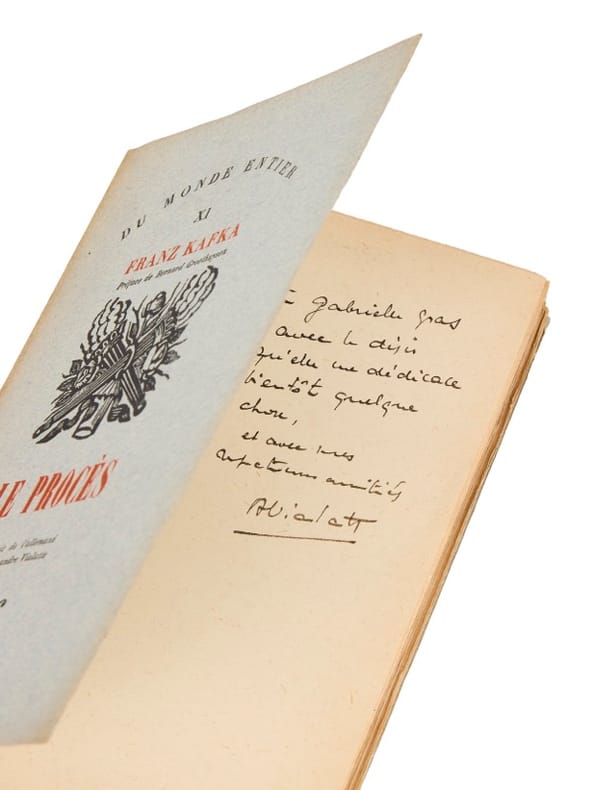 DU MONDE ENTIER
XI
FRANZ KAFKA
Préface de Bernard Groethuysen
LE PROCÈS
de l'allemand
Vialatte
à Gabrielle Gras
avec le désir
qu'elle me dédicace
bientôt quelque
chose,
et avec mes
amitiés
AVialatte